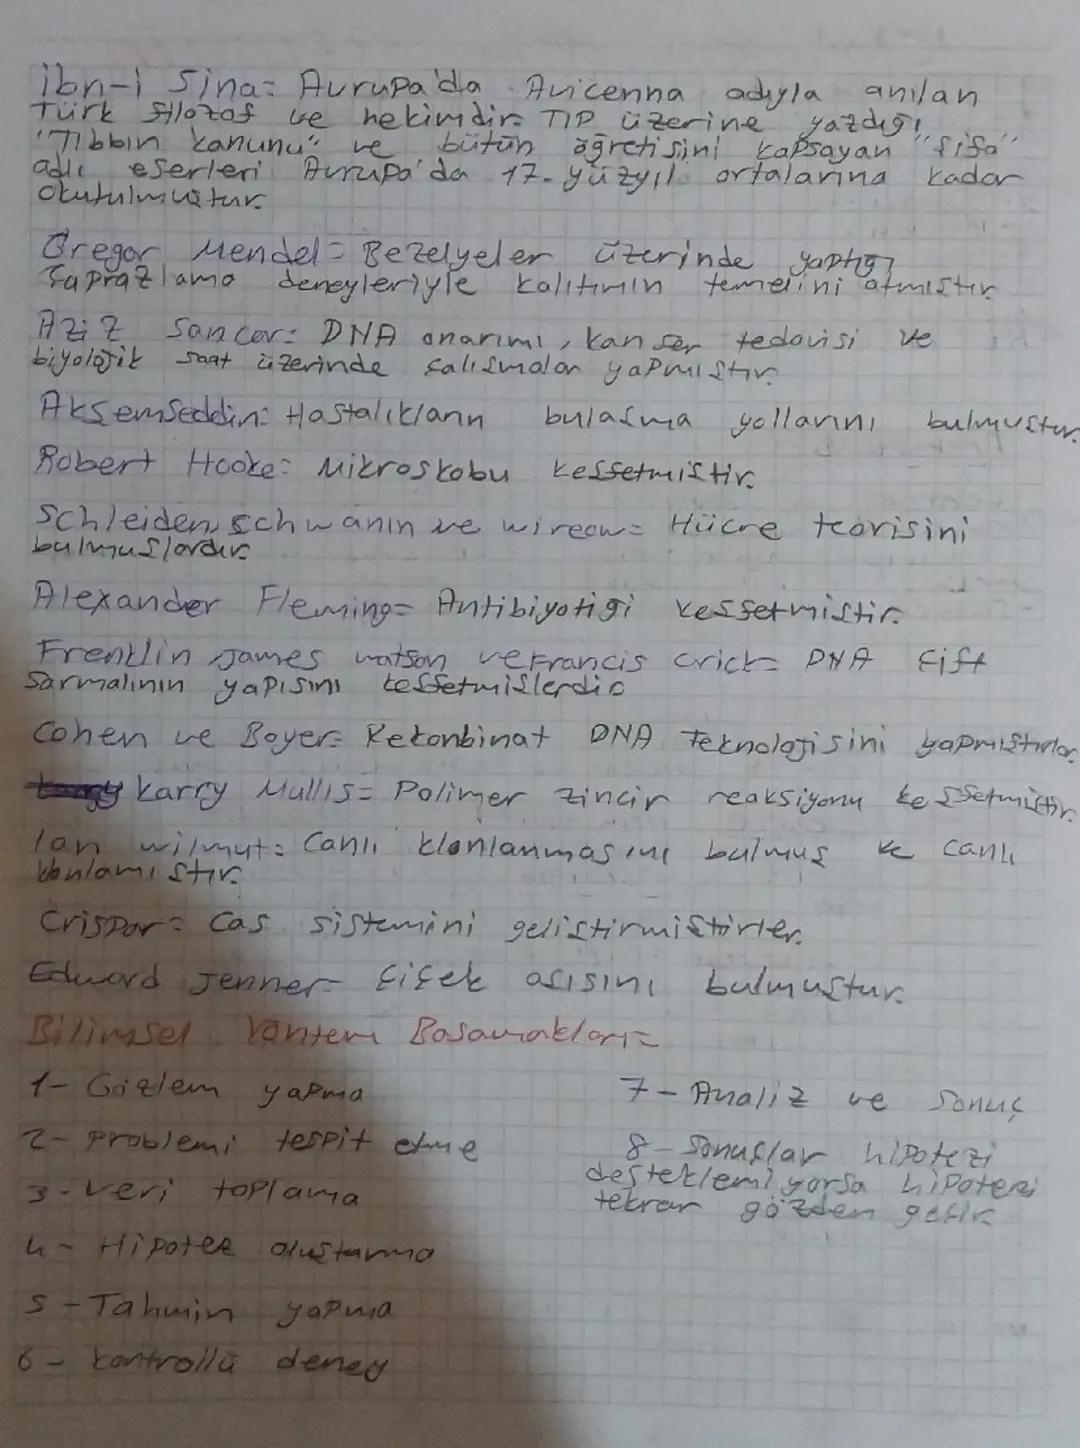 ibn-i Sina= Avrupa'da Avicenna adıyla anılan
Türk filozof ve hekimdir. TIP üzerine yazdığı
"Tıbbın kanunu" ve bütün öğretisini kapsayan "şifa"
adlı eserleri Avrupa'da 17. yüzyıl ortalarına kadar
okutulmuştur.
Gregor Mendel= Bezelyeler üzerinde yaptığı
çaprazlama deneyleriyle kalıtımın temelini atmıştır.
Aziz Sancar: DNA onarımı, kanser tedavisi ve
biyolojik saat üzerinde çalışmalar yapmıştır.
Akşemseddin: Hastalıkların bulaşma yollarını bulmuştur.
Robert Hooke= Mikroskobu keşfetmiştir.
Schleiden, Schwanın ve wircow= Hücre teorisini
bulmuşlardır.
Alexander Fleming= Antibiyotiği keşfetmiştir.
Frenklin James watson ve Francis crick= DNA çift
sarmalının yapısını keşfetmişlerdir
Cohen ve Boyer= Rekonbinat DNA Teknolojisini yapmıştırlar.
karry Mullis= Polimer zincir reaksiyonu keşfetmiştir.
Ian wilmut= Canlı klonlanmasını bulmuş ve canlı
klonlamıştır.
Crispar= Cas sistemini geliştirmiştirler.
Edward Jenner= Çiçek aşısını bulmuştur.
Bilimsel Yöntem Basamakları=
1- Gözlem yapma
2- Problemi tespit etme
3- Veri toplama
4- Hipotez oluşturma
5- Tahmin yapma
6- kontrollü deney
7- Analiz ve Sonuç
8- Sonuçlar hipotezi
desteklemiyorsa hipotezi
tekrar gözden geçir.